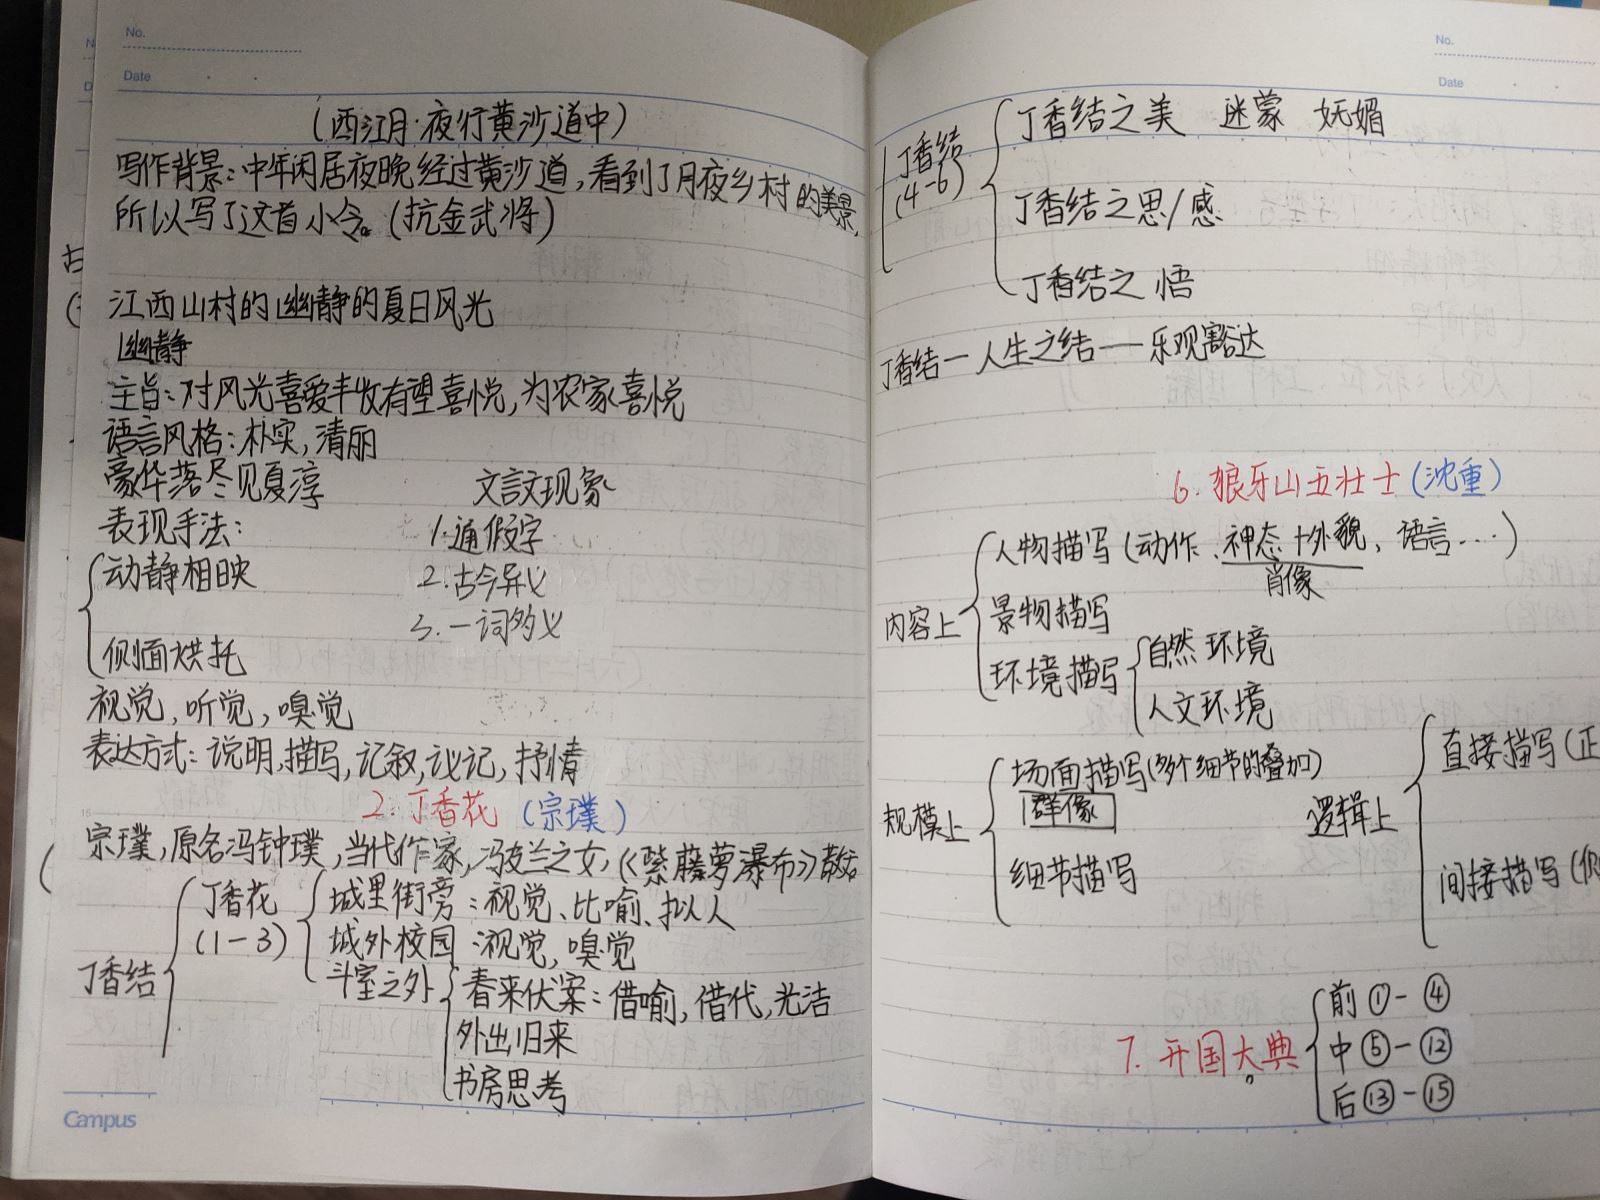 No.
Date
(西江月·夜行黄沙道中)
写作背景:中年闲居夜晚经过黄沙道,看到了月夜乡村的美景,
所以写了这首小令。(抗金武将)
江西山村的幽静的夏日风光
幽静
主旨:对风光喜爱丰收有望喜悦,为农家喜悦
语言风格:朴实,清丽
豪华落尽见夏淳
文言文现象
表现手法:
1.通假字
动静相映
2.古今异义
3.一词多义
侧面烘托
视觉,听觉,嗅觉
表达方式:说明,描写,记叙,议记,抒情
2.丁香花(宗璞)
宗璞,原名冯钟璞,当代作家,冯友兰之女,《紫藤萝瀑布》散
丁香结
丁香花
(1-3)
城里街旁:视觉、比喻、拟人
城外校园:视觉,嗅觉
斗室之外
春来伏案:借喻,借代,光洁
外出归来
书房思考
Campus
No.
Date
丁香结
(4-6)
丁香结之美 迷蒙 妩媚
丁香结之思/感
丁香结之悟
丁香结—人生之结—乐观豁达
6.狼牙山五壮士(沈重)
内容上
人物描写(动作、神态+外貌、语言...)
肖像
景物描写
环境描写
自然环境
人文环境
规模上
场面描写(多个细节的叠加)
群像
细节描写
逻辑上
直接描写(正
间接描写(侧
7.开国大典。
前①-④
中⑤-⑫
后⑬-⑮